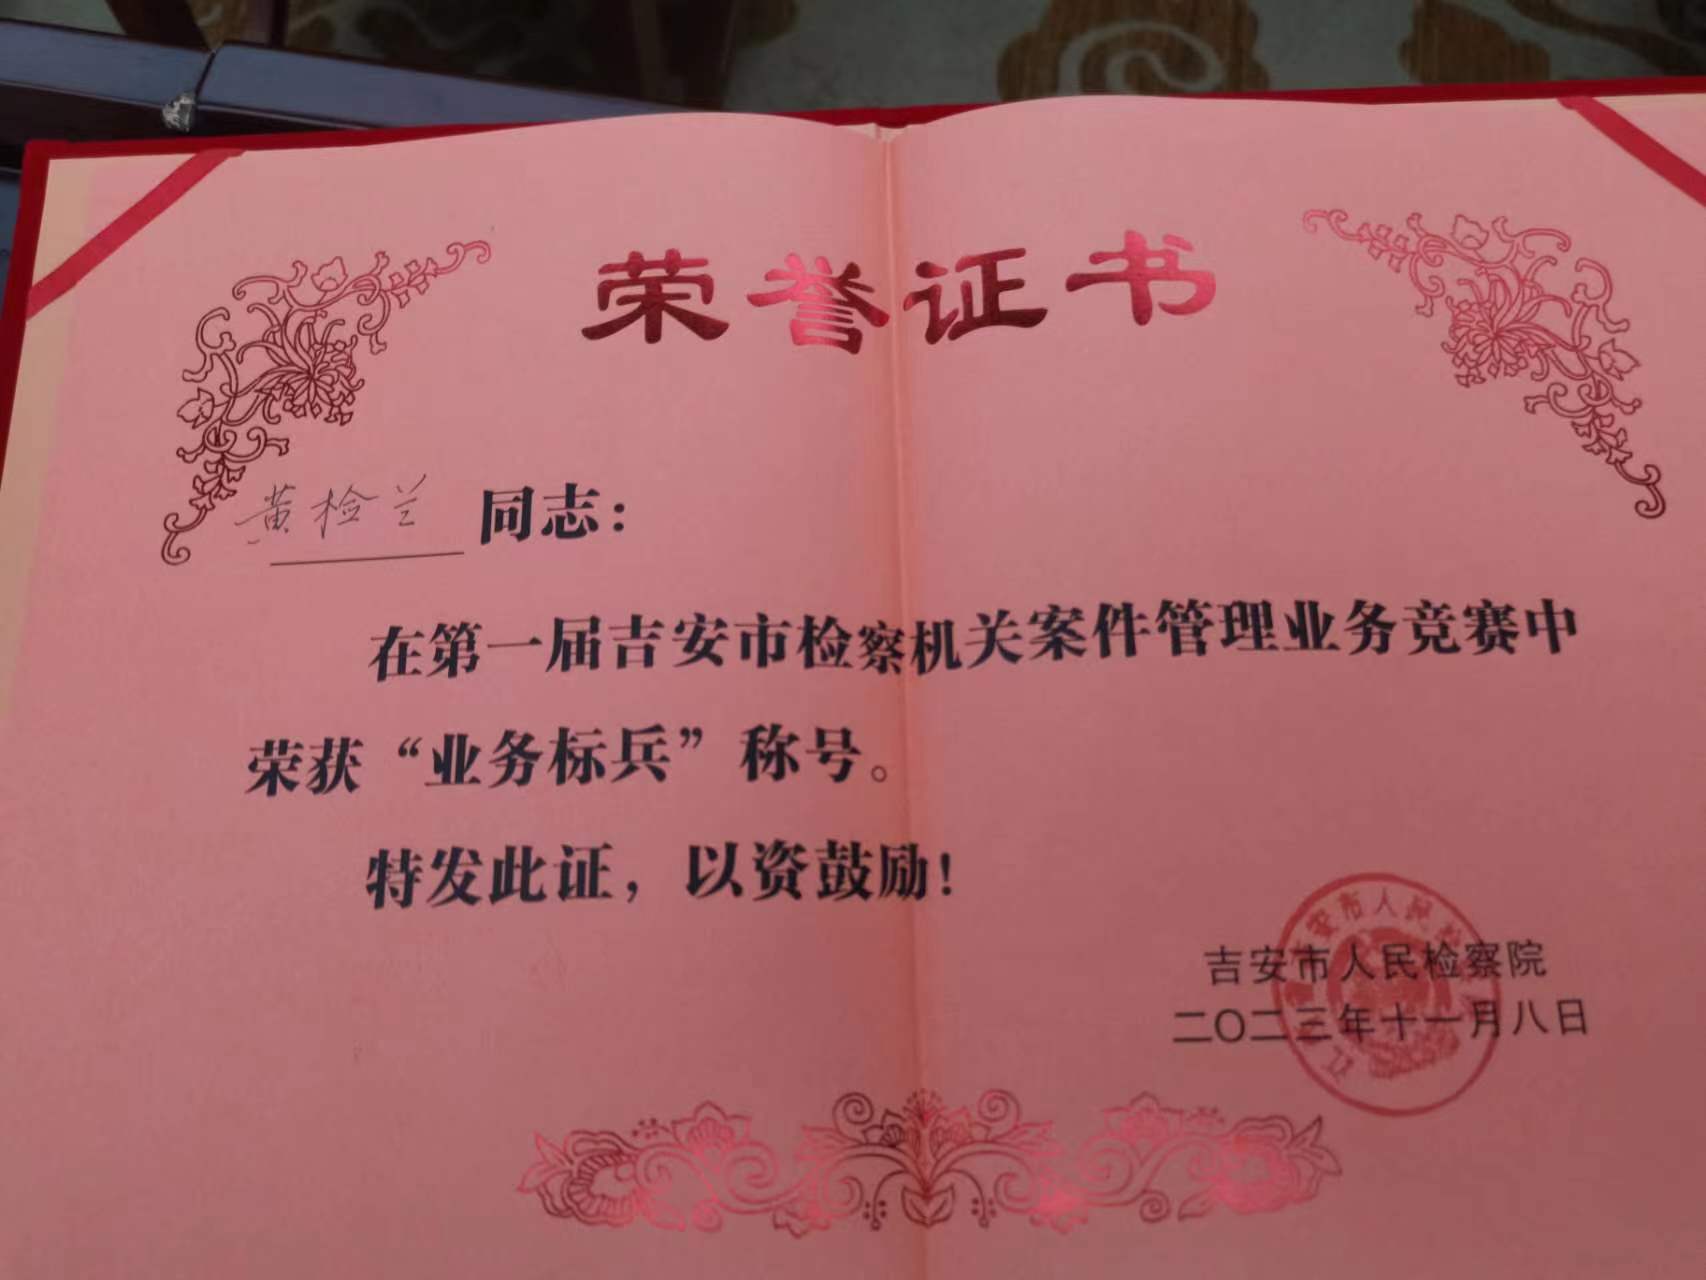 荣誉证书
黄检兰 同志：
在第一届吉安市检察机关案件管理业务竞赛中
荣获“业务标兵”称号。
特发此证，以资鼓励！
吉安市人民检察院
二〇二三年十一月八日